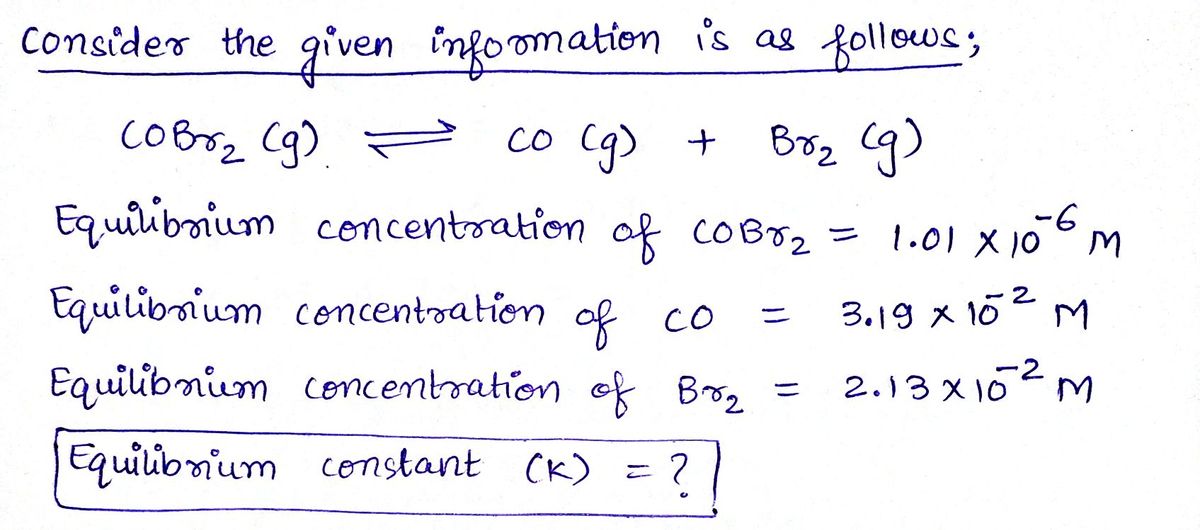 Consider the given information is as follows;
COBr₂ (g) ⇌ CO (g) + Br₂ (g)
Equilibrium concentration of COBr₂ = 1.01 × 10⁻⁶ M
Equilibrium concentration of CO = 3.19 × 10⁻² M
Equilibrium concentration of Br₂ = 2.13 × 10⁻² M
Equilibrium constant (K) = ?